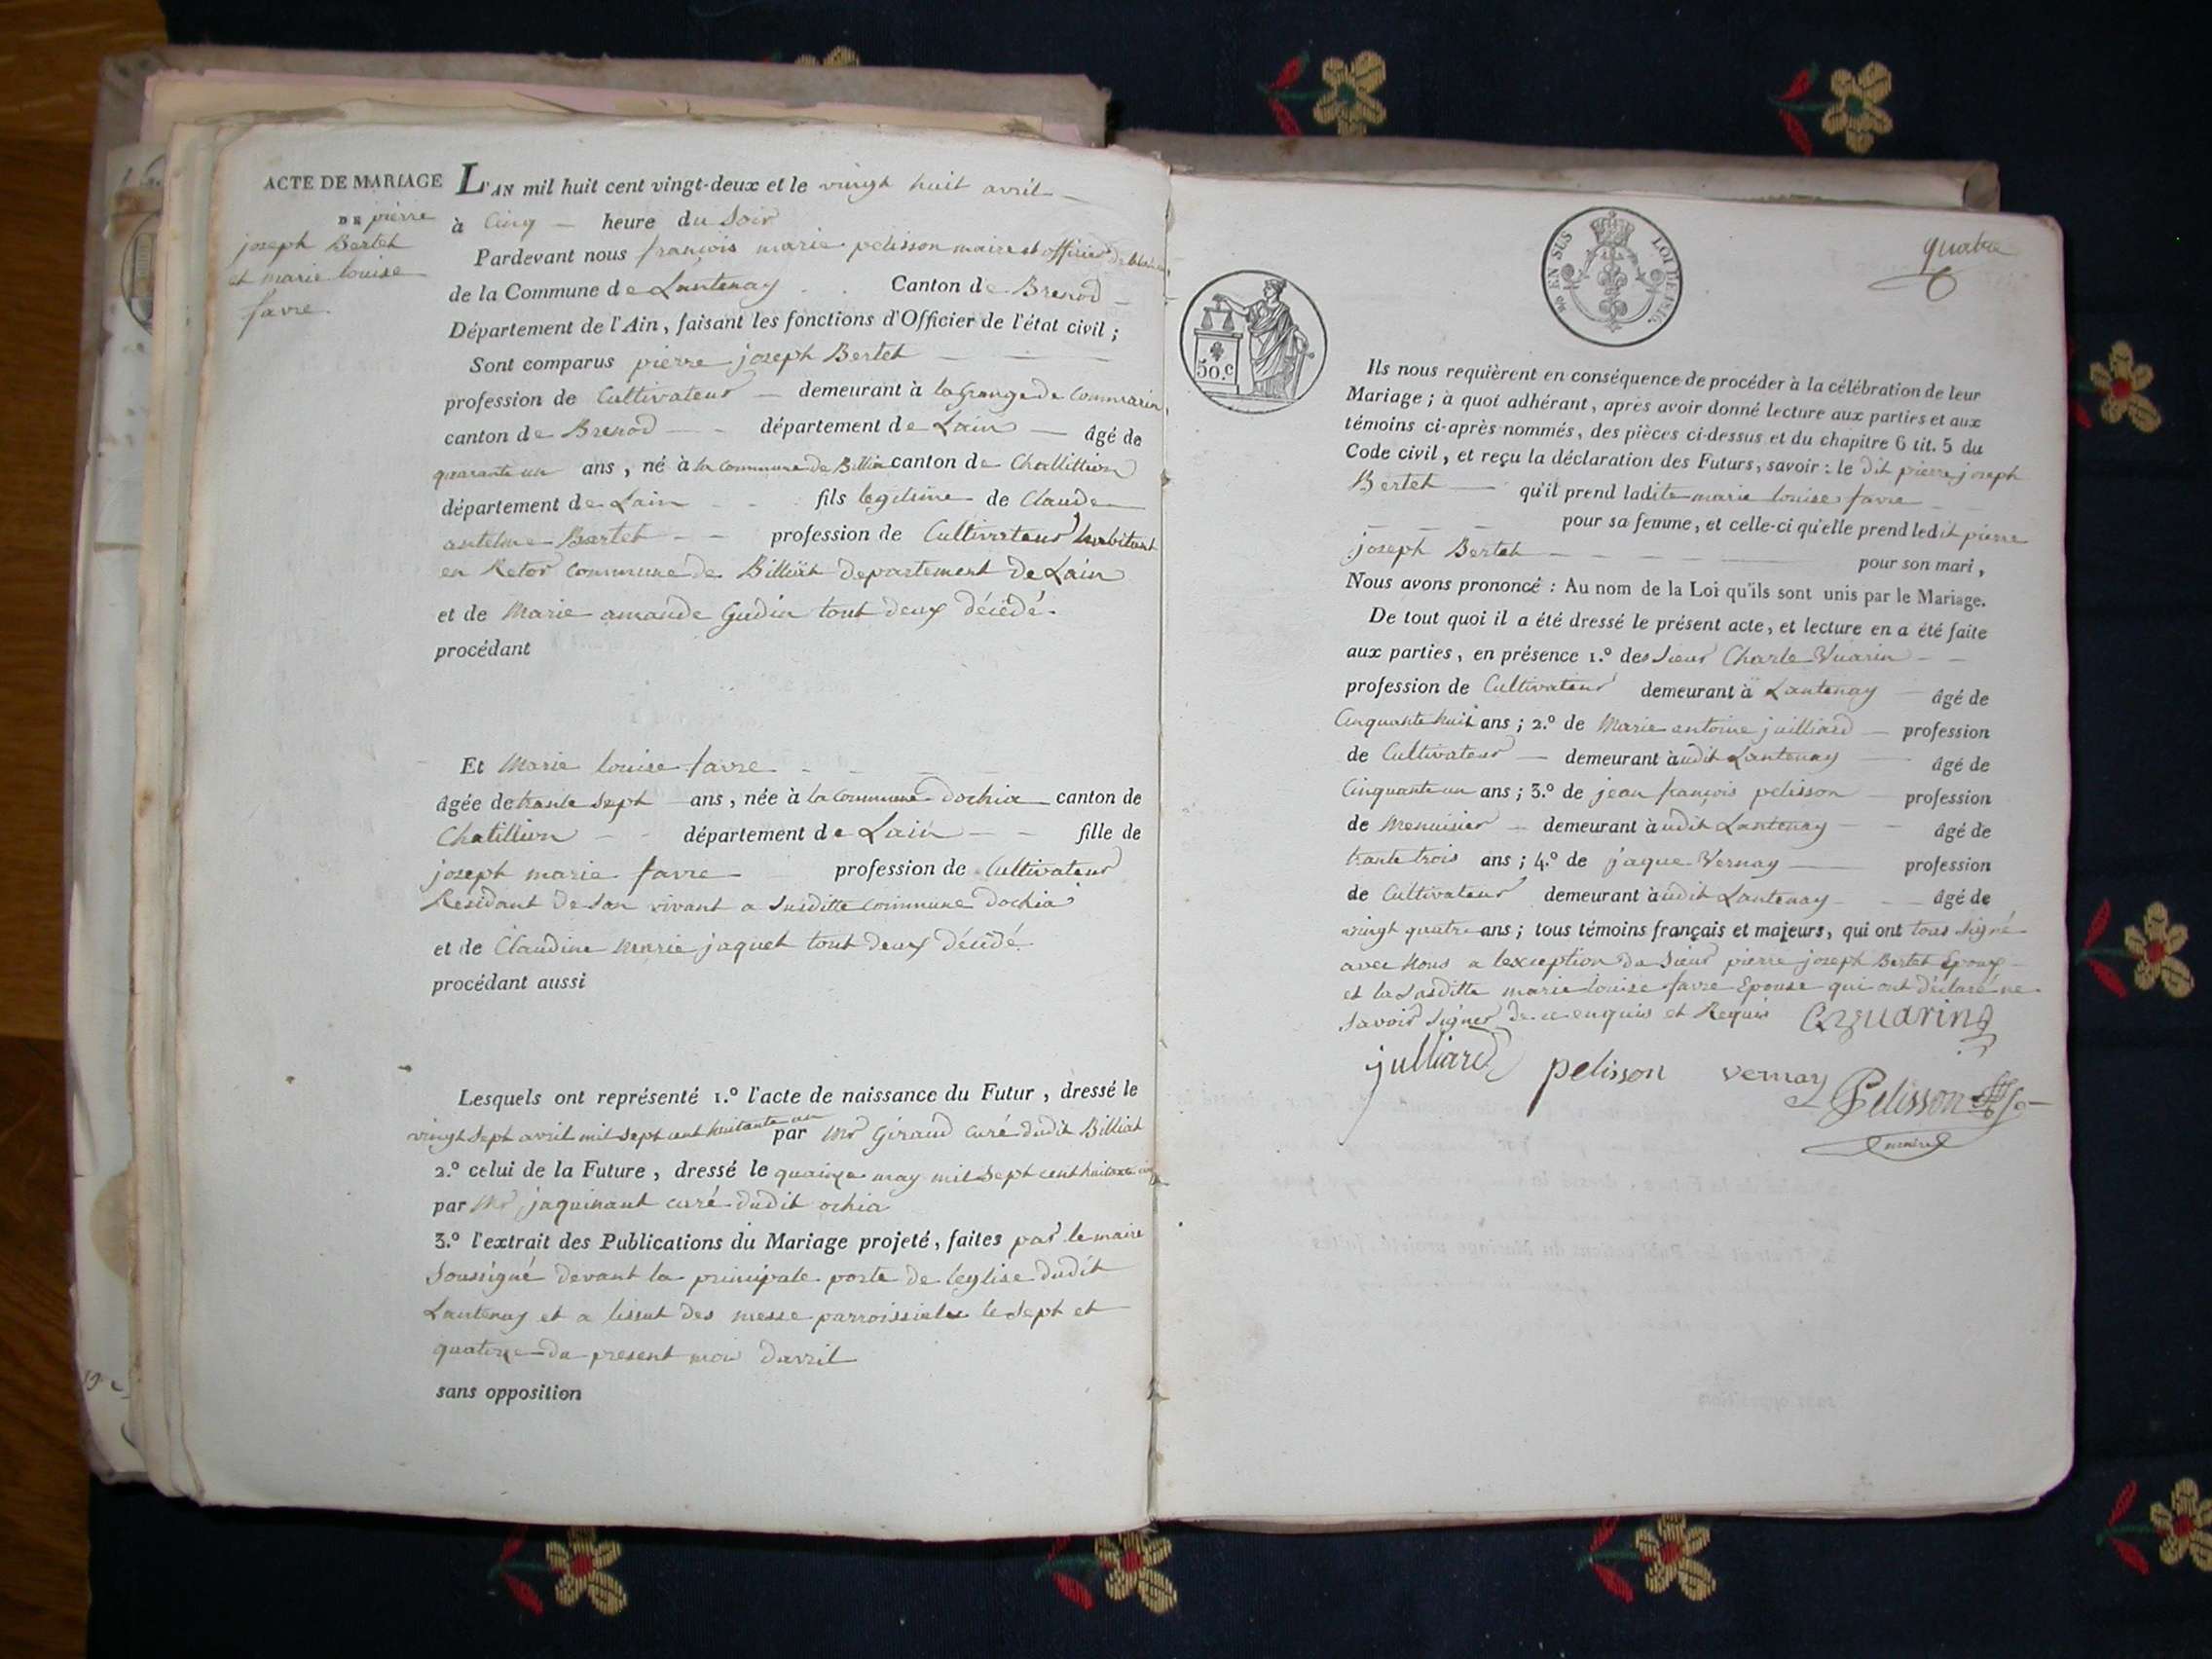 ACTE DE MARIAGE
DE pierre
joseph Bertet
et marie louise
favre
L'AN mil huit cent vingt-deux et le vingt huit avril
à Cinq heure du Soir
Pardevant nous françois marie pelisson maire et officier
de la Commune de Lantenay Canton de Brenod
Département de l'Ain, faisant les fonctions d'Officier de l'état civil ;
Sont comparus pierre joseph Bertet
profession de Cultivateur demeurant à la Grange de Commarin
canton de Brenod département de Lain âgé de
quarante un ans, né à la commune de Billia canton de Chatillion
département de Lain fils legitime de Claude
antelme Bertet profession de Cultivateur habitant
en Retor commune de Billiat departement de Lain
et de Marie amande Gudin tout deux décédé.
procédant
Et Marie louise favre
âgée de trante sept ans, née à la commune dochia canton de
Chatillion département de Lain fille de
joseph marie favre profession de Cultivateur
Residant de son vivant a Susditte commune dochia
et de Claudine marie jaquet tout deux décédé
procédant aussi
Lesquels ont représenté 1.º l'acte de naissance du Futur, dressé le
vingt sept avril mil sept cent huitante un par Mr Giraud curé dudit Billiat
2.º celui de la Future, dressé le quainze may mil sept cent huitante
par Mr jaquinant curé dudit ochia
3.º l'extrait des Publications du Mariage projeté, faites par le maire
Soussigné devant la principale porte de leglise dudit
Lantenay et a lissut des messe parroissiales le sept et
quatorze du present moi davril
sans opposition
EN SUS LOI DE 1816.
quatre
50.c
Ils nous requièrent en conséquence de procéder à la célébration de leur
Mariage ; à quoi adhérant, après avoir donné lecture aux parties et aux
témoins ci-après nommés, des pièces ci-dessus et du chapitre 6 tit. 5 du
Code civil, et reçu la déclaration des Futurs, savoir : le dit pierre joseph
Bertet qu'il prend ladite marie louise favre
pour sa femme, et celle-ci qu'elle prend ledit pierre
joseph Bertet
pour son mari,
Nous avons prononcé : Au nom de la Loi qu'ils sont unis par le Mariage.
De tout quoi il a été dressé le présent acte, et lecture en a été faite
aux parties, en présence 1.º des Sieur Charle Vuarin
profession de Cultivateur demeurant à Lantenay âgé de
Cinquante huit ans ; 2.º de Marie antoine juilliard profession
de Cultivateur demeurant à udit Lantenay âgé de
Cinquante un ans ; 3.º de jean françois pelisson profession
de Menuisier demeurant à udit Lantenay âgé de
trante trois ans ; 4.º de jaque Vernay profession
de Cultivateur demeurant à udit Lantenay âgé de
vingt quatre ans ; tous témoins français et majeurs, qui ont tous signé
avec Nous a lexception du Sieur pierre joseph Bertet Epoux
et la Susditte marie louise favre Epouse qui ont déclaré ne
savoir signer de ce enquis et Requis
julliard pelisson vernay Pelisson
maire